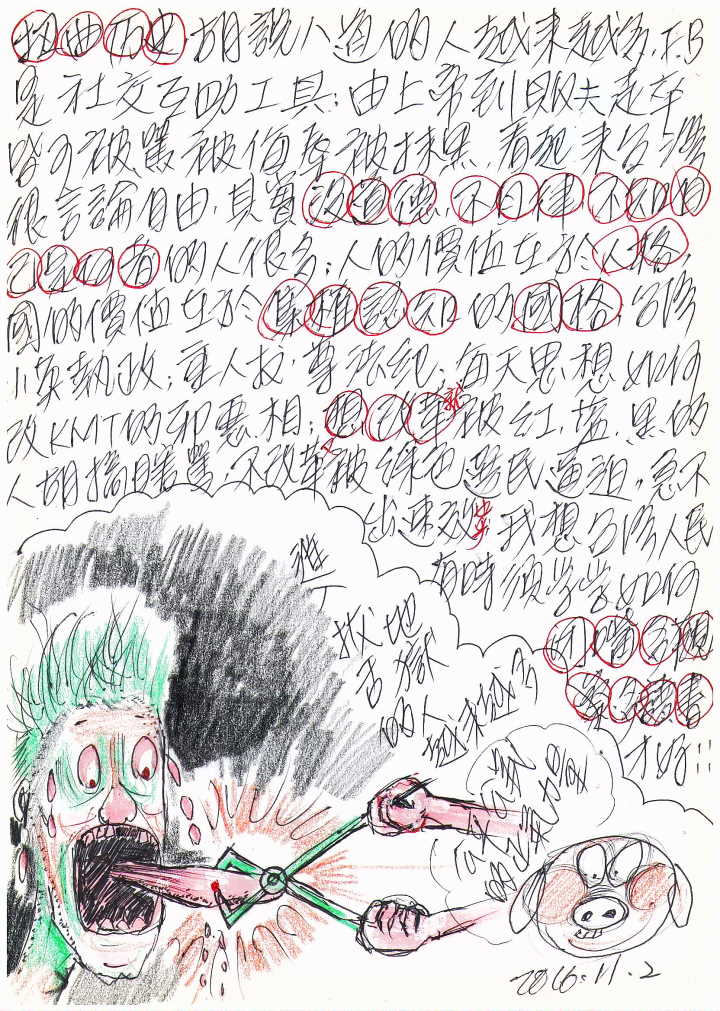 扭曲历史胡說八道的人越来越多,F.B
是社交互助工具;由上帝到販夫走卒
皆可被罵被侮辱被抹黑.看起来台灣
很言論自由,其實没道德.不自律不知自
己是何者的人很多;人的價值在於人格.
國的價值在於集體認知的國格.台灣
小英執政;重人权;尊法纪.每天思想如何
改KMT的邪惡相;想改革就被紅.藍.黑的
人胡搞瞎罵 不改革被綠色選民逼迫.急不
出速效藥 我想台灣人民
有時須学学如何
閉嘴合想
多讀書
才好::
進入
拔地
舌獄
的人
越来越多
2016.11.2